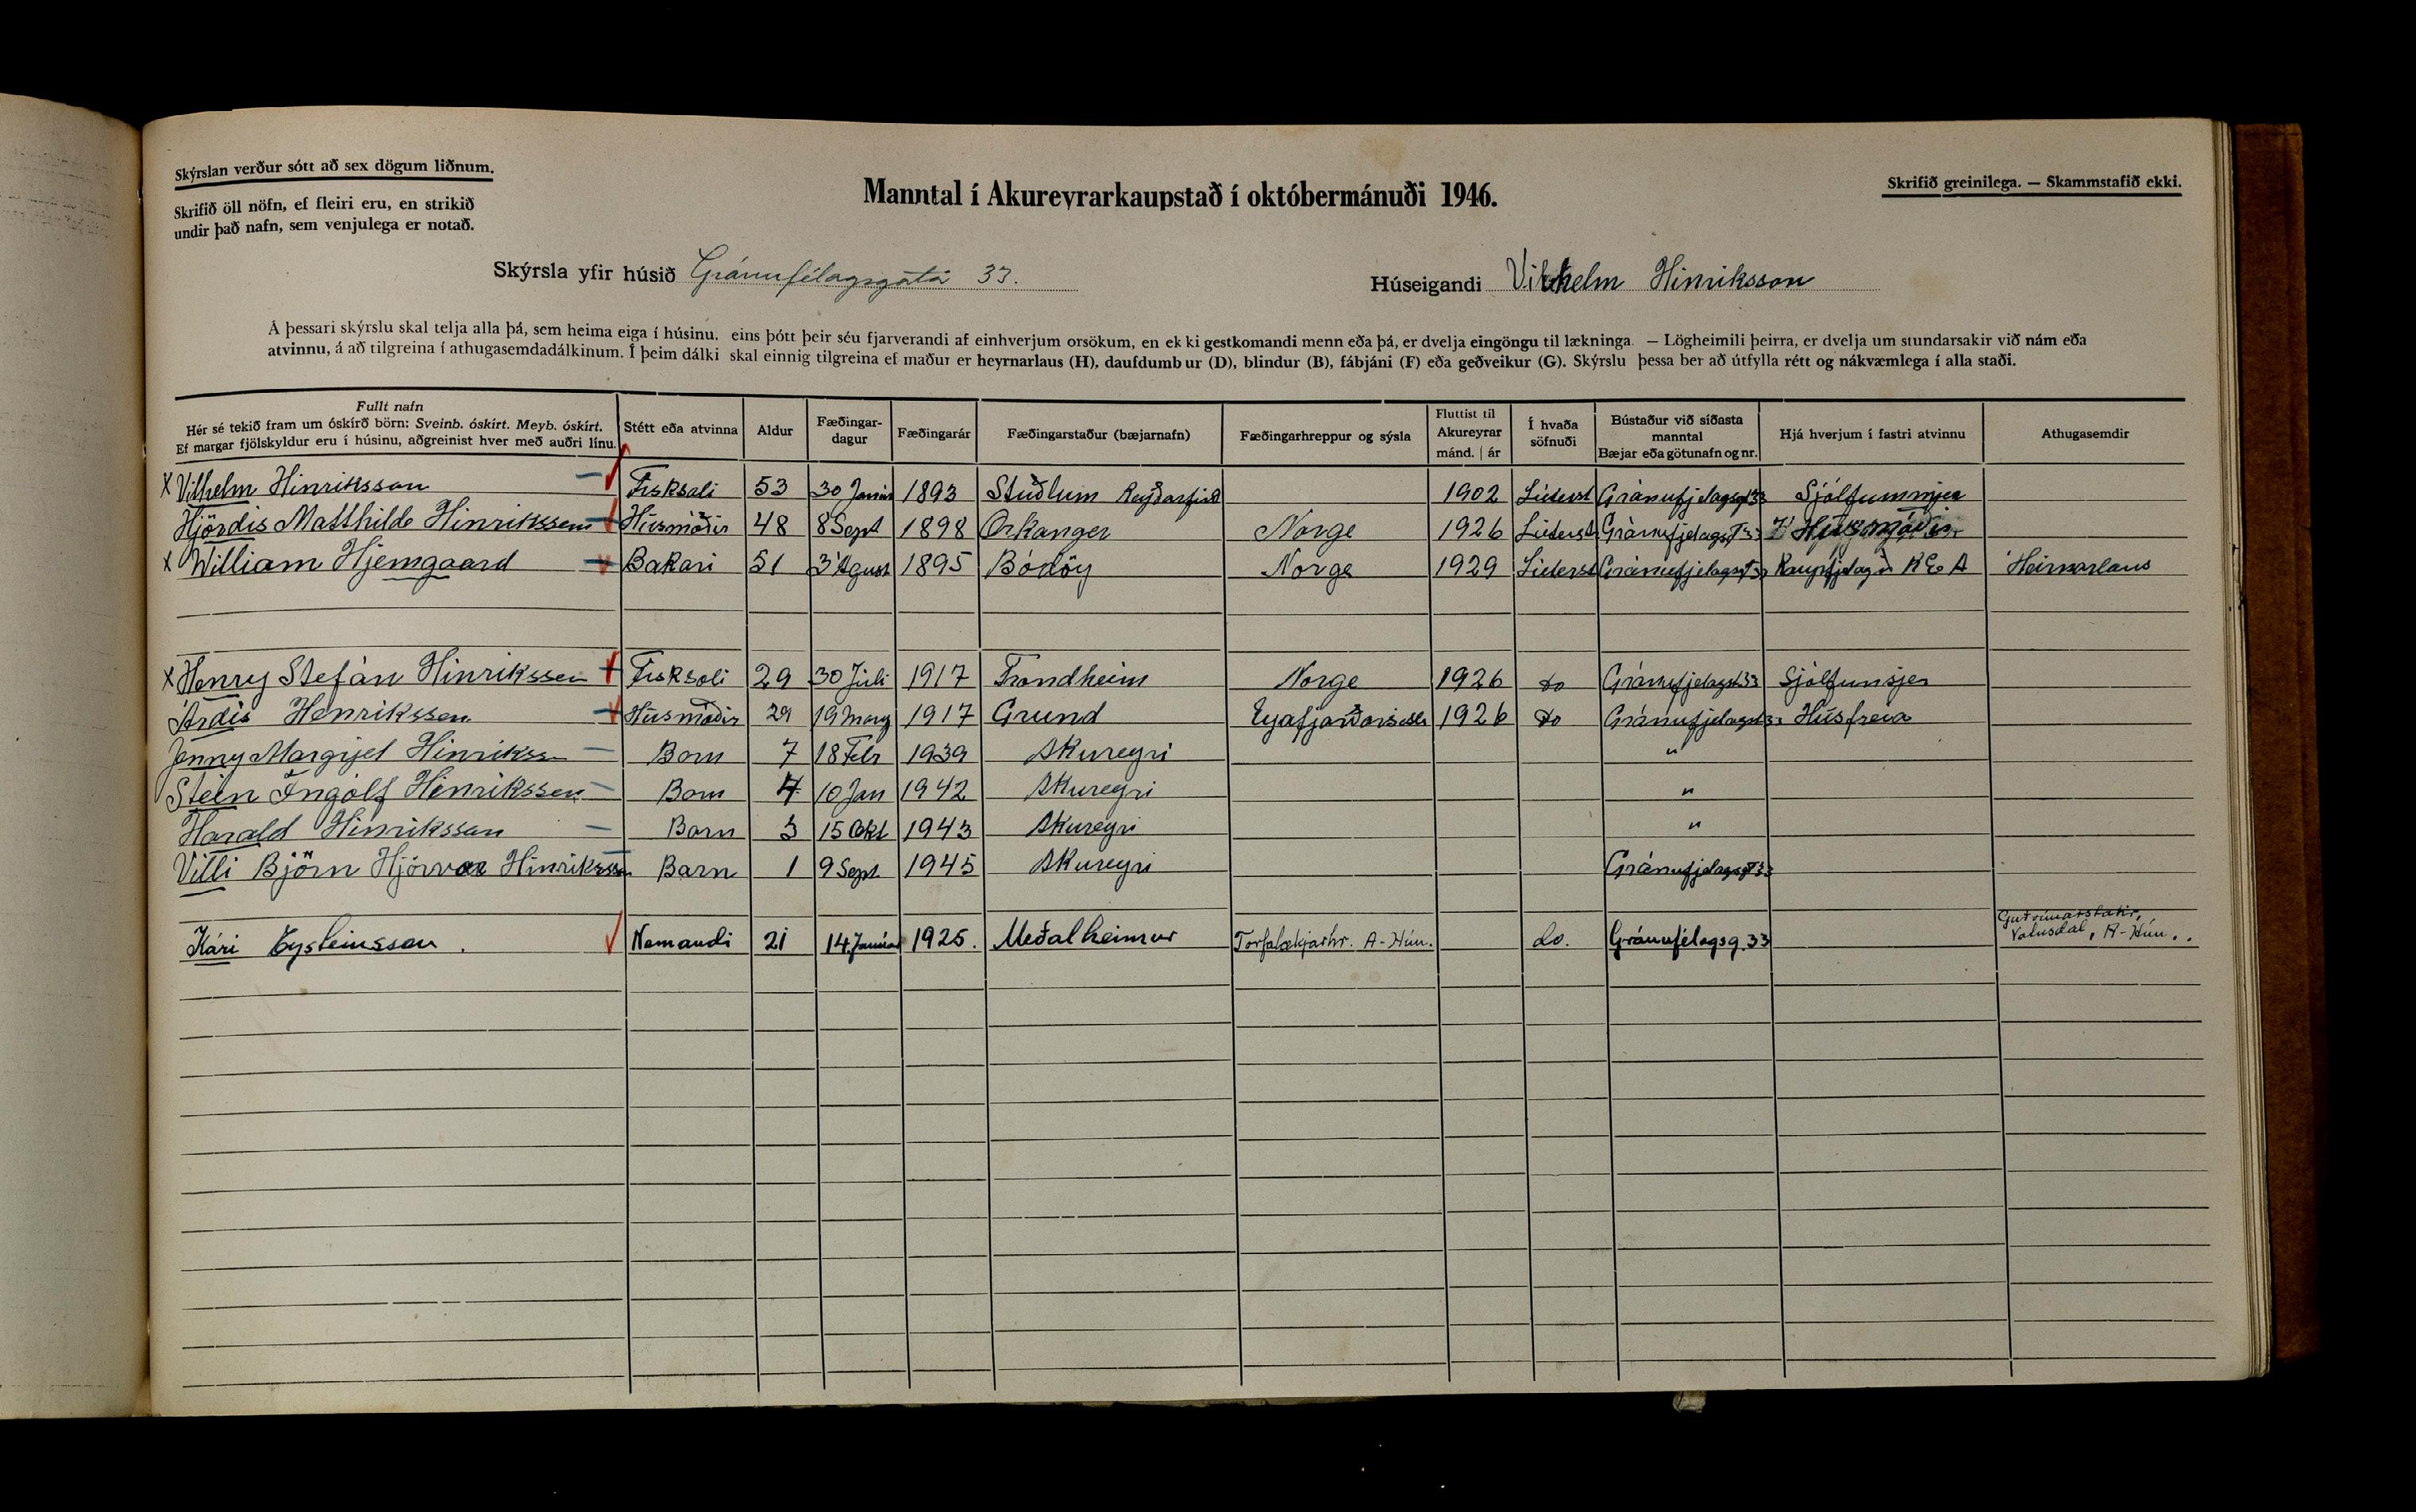 Skýrslan verður sótt að sex dögum liðnum.
Skrifið öll nöfn, ef fleiri eru, en strikið
undir það nafn, sem venjulega er notað.
Manntal í Akureyrarkaupstað í októbermánuði 1946.
Skrifið greinilega. — Skammstafið ekki.
Skýrsla yfir húsið Gránufélagsgata 33.
Húseigandi Vilhelm Hinriksson
Á þessari skýrslu skal telja alla þá, sem heima eiga í húsinu, eins þótt þeir séu fjarverandi af einhverjum orsökum, en ekki gestkomandi menn eða þá, er dvelja eingöngu til lækninga. — Lögheimili þeirra, er dvelja um stundarsakir við nám eða
atvinnu, á að tilgreina í athugasemdadálkinum. Í þeim dálki skal einnig tilgreina ef maður er heyrnarlaus (H), daufdumbur (D), blindur (B), fábjáni (F) eða geðveikur (G). Skýrslu þessa ber að útfylla rétt og nákvæmlega í alla staði.
Fullt nafn
Hér sé tekið fram um óskírð börn: Sveinb. óskírt. Meyb. óskírt.
Ef margar fjölskyldur eru í húsinu, aðgreinist hver með auðri línu.
Stétt eða atvinna
Aldur
Fæðingar-
dagur
Fæðingarár
Fæðingarstaður (bæjarnafn)
Fæðingarhreppur og sýsla
Fluttist til
Akureyrar
mánd. | ár
Í hvaða
söfnuði
Bústaður við síðasta
manntal
Bæjar eða götunafn og nr.
Hjá hverjum í fastri atvinnu
Athugasemdir
x Vilhelm Hinriksson Fisksali 53 30 Janúar 1893 Stuðlum Reyðarfirði 1902 Lúterst Gránufjelagsgt 33 Sjálfummjer
Hjördis Matthilde Hinrikssen Húsmóðir 48 8 Sept 1898 Orkanger Norge 1926 Lúterst Gránufjelagsgt 33 Húsmóðir
x William Hjemgaard Bakari 51 3 Ágúst 1895 Bódöy Norge 1929 Lúterst Gránufjelagsgt 33 Kaupfjelagið K E A Heirnarlaus
x Henry Stefán Hinrikssen Fisksali 29 30 Júli 1917 Trondheim Norge 1926 do Gránufjelagsgt 33 Sjálfumsjer
Árdis Henrikssen Húsmóðir 29 19 Marz 1917 Grund Eyafjarðarsisslu 1926 do Gránufjelagsgt 33 Húsfreia
Jenny Margrjet Hinrikss Barn 7 18 Febr 1939 Akureyri "
Stein Ingolf Henrikssen Barn 4 10 Jan 1942 Akureyri "
Harald Hinriksson Barn 3 15 Okt 1943 Akureyri "
Villi Björn Hjörvar Hinriksson Barn 1 9 Sept 1945 Akureyri Gránufjelagsgt 33
Kári Eysteinsson. Nemandi 21 14. Janúar 1925. Meðalheimur Torfalækjarhr. A-Hún. do. Gránufélagsg. 33
Guðrúnarstaðir,
Vatnsdal, A-Hún..